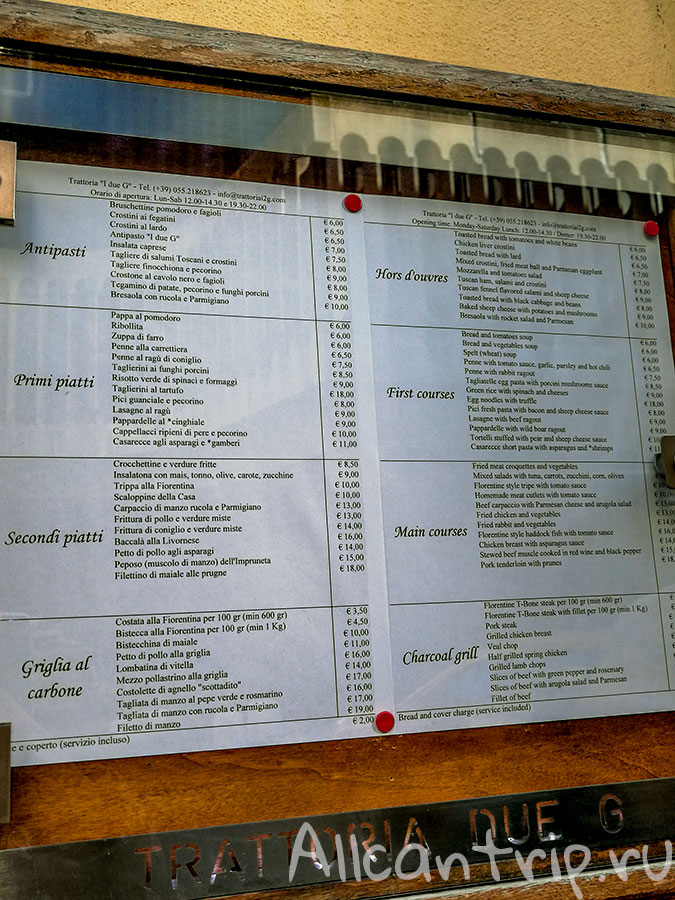 Trattoria "I due G" - Tel. (+39) 055.218623 - info@trattoriai2g.com
Orario di apertura: Lun-Sab 12.00-14.30 e 19.30-22.00
Antipasti
Bruschettine pomodoro e fagioli € 6,00
Crostini ai fegatini € 6,50
Crostini al lardo € 6,50
Antipasto "I due G" € 7,00
Insalata caprese € 7,50
Tagliere di salumi Toscani e crostini € 8,00
Tagliere finocchiona e pecorino € 9,00
Crostone al cavolo nero e fagioli € 8,00
Tegamino di patate, pecorino e funghi porcini € 9,00
Bresaola con rucola e Parmigiano € 10,00
Primi piatti
Pappa al pomodoro € 6,00
Ribollita € 6,00
Zuppa di farro € 6,00
Penne alla carrettiera € 6,50
Penne al ragù di coniglio € 7,50
Taglierini ai funghi porcini € 8,50
Risotto verde di spinaci e formaggi € 9,00
Taglierini al tartufo € 18,00
Pici guanciale e pecorino € 8,00
Lasagne al ragù € 9,00
Pappardelle al *cinghiale € 9,00
Cappellacci ripieni di pere e pecorino € 10,00
Casarecce agli asparagi e *gamberi € 11,00
Secondi piatti
Crocchettine e verdure fritte € 8,50
Insalatona con mais, tonno, olive, carote, zucchine € 9,00
Trippa alla Fiorentina € 10,00
Scaloppine della Casa € 10,00
Carpaccio di manzo rucola e Parmigiano € 13,00
Frittura di pollo e verdure miste € 13,00
Frittura di coniglio e verdure miste € 14,00
Baccalà alla Livornese € 16,00
Petto di pollo agli asparagi € 14,00
Peposo (muscolo di manzo) dell'Impruneta € 15,00
Filettino di maiale alle prugne € 18,00
Griglia al
carbone
Costata alla Fiorentina per 100 gr (min 600 gr) € 3,50
Bistecca alla Fiorentina per 100 gr (min 1 Kg) € 4,50
Bistecchina di maiale € 10,00
Petto di pollo alla griglia € 11,00
Lombatina di vitella € 16,00
Mezzo pollastrino alla griglia € 14,00
Costolette di agnello "scottadito" € 17,00
Tagliata di manzo al pepe verde e rosmarino € 16,00
Tagliata di manzo con rucola e Parmigiano € 17,00
Filetto di manzo € 19,00
e e coperto (servizio incluso) € 2,00
Trattoria "I due G" - Tel. (+39) 055.218623 - info@trattoriai2g.com
Opening time: Monday-Saturday Lunch: 12.00-14.30 / Dinner: 19.30-22.00
Hors d'ouvres
Toasted bread with tomatoes and white beans € 6,00
Chicken liver crostini € 6,50
Toasted bread with lard € 6,50
Mixed crostini, fried meat ball and Parmesan eggplant € 7,00
Mozzarella and tomatoes salad € 7,50
Tuscan ham, salami and crostini € 8,00
Tuscan fennel flavored salami and sheep cheese € 9,00
Toasted bread with black cabbage and beans € 8,00
Baked sheep cheese with potatoes and mushrooms € 9,00
Bresaola with rocket salad and Parmesan € 10,00
First courses
Bread and tomatoes soup € 6,00
Bread and vegetables soup € 6,00
Spelt (wheat) soup € 6,00
Penne with tomato sauce, garlic, parsley and hot chili € 6,50
Penne with rabbit ragout € 7,50
Tagliatelle egg pasta with porcini mushrooms sauce € 8,50
Green rice with spinach and cheeses € 9,00
Egg noodles with truffle € 18,00
Pici fresh pasta with bacon and sheep cheese sauce € 8,00
Lasagne with beef ragout € 9,00
Pappardelle with wild boar ragout € 9,00
Tortelli stuffed with pear and sheep cheese sauce
Casarecce short pasta with asparagus and *shrimps
Main courses
Fried meat croquettes and vegetables
Mixed salads with tuna, carrots, zucchini, corn, olives
Florentine style tripe with tomato sauce
Homemade meat cutlets with tomato sauce
Beef carpaccio with Parmesan cheese and arugola salad
Fried chicken and vegetables
Fried rabbit and vegetables
Florentine style haddock fish with tomato sauce
Chicken breast with asparagus sauce
Stewed beef muscle cooked in red wine and black pepper
Pork tenderloin with prunes
Charcoal grill
Florentine T-Bone steak per 100 gr (min 600 gr)
Florentine T-Bone steak with fillet per 100 gr (min 1 Kg)
Pork steak
Grilled chicken breast
Veal chop
Half grilled spring chicken
Grilled lamb chops
Slices of beef with green pepper and rosemary
Slices of beef with arugola salad and Parmesan
Fillet of beef
Bread and cover charge (service included)
TRATTORIA DUE G
Allcantrip.ru